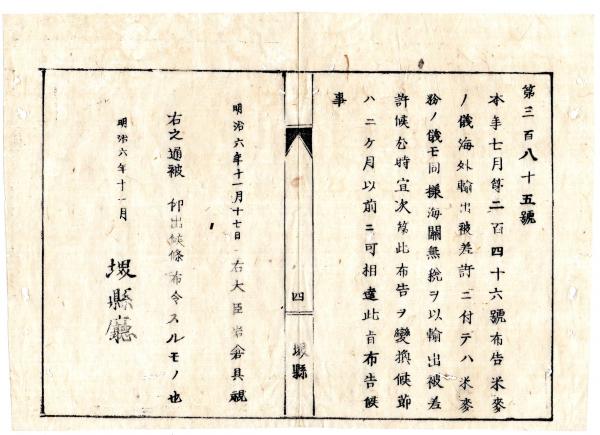 第三百八十五號
本年七月第二百四十六號布告米麥
ノ儀海外輸出被差許ニ付テハ米麥
粉ノ儀モ同樣海關無稅ヲ以輸出被差
許候尤時宜次第此布告ヲ變換候節
ハ二ケ月以前ニ可相達此旨布告候
事
明治六年十一月十七日 右大臣岩倉具視
右之通被 仰出候條布令スルモノ也
明治六年十一月
堺縣廳
四
堺縣